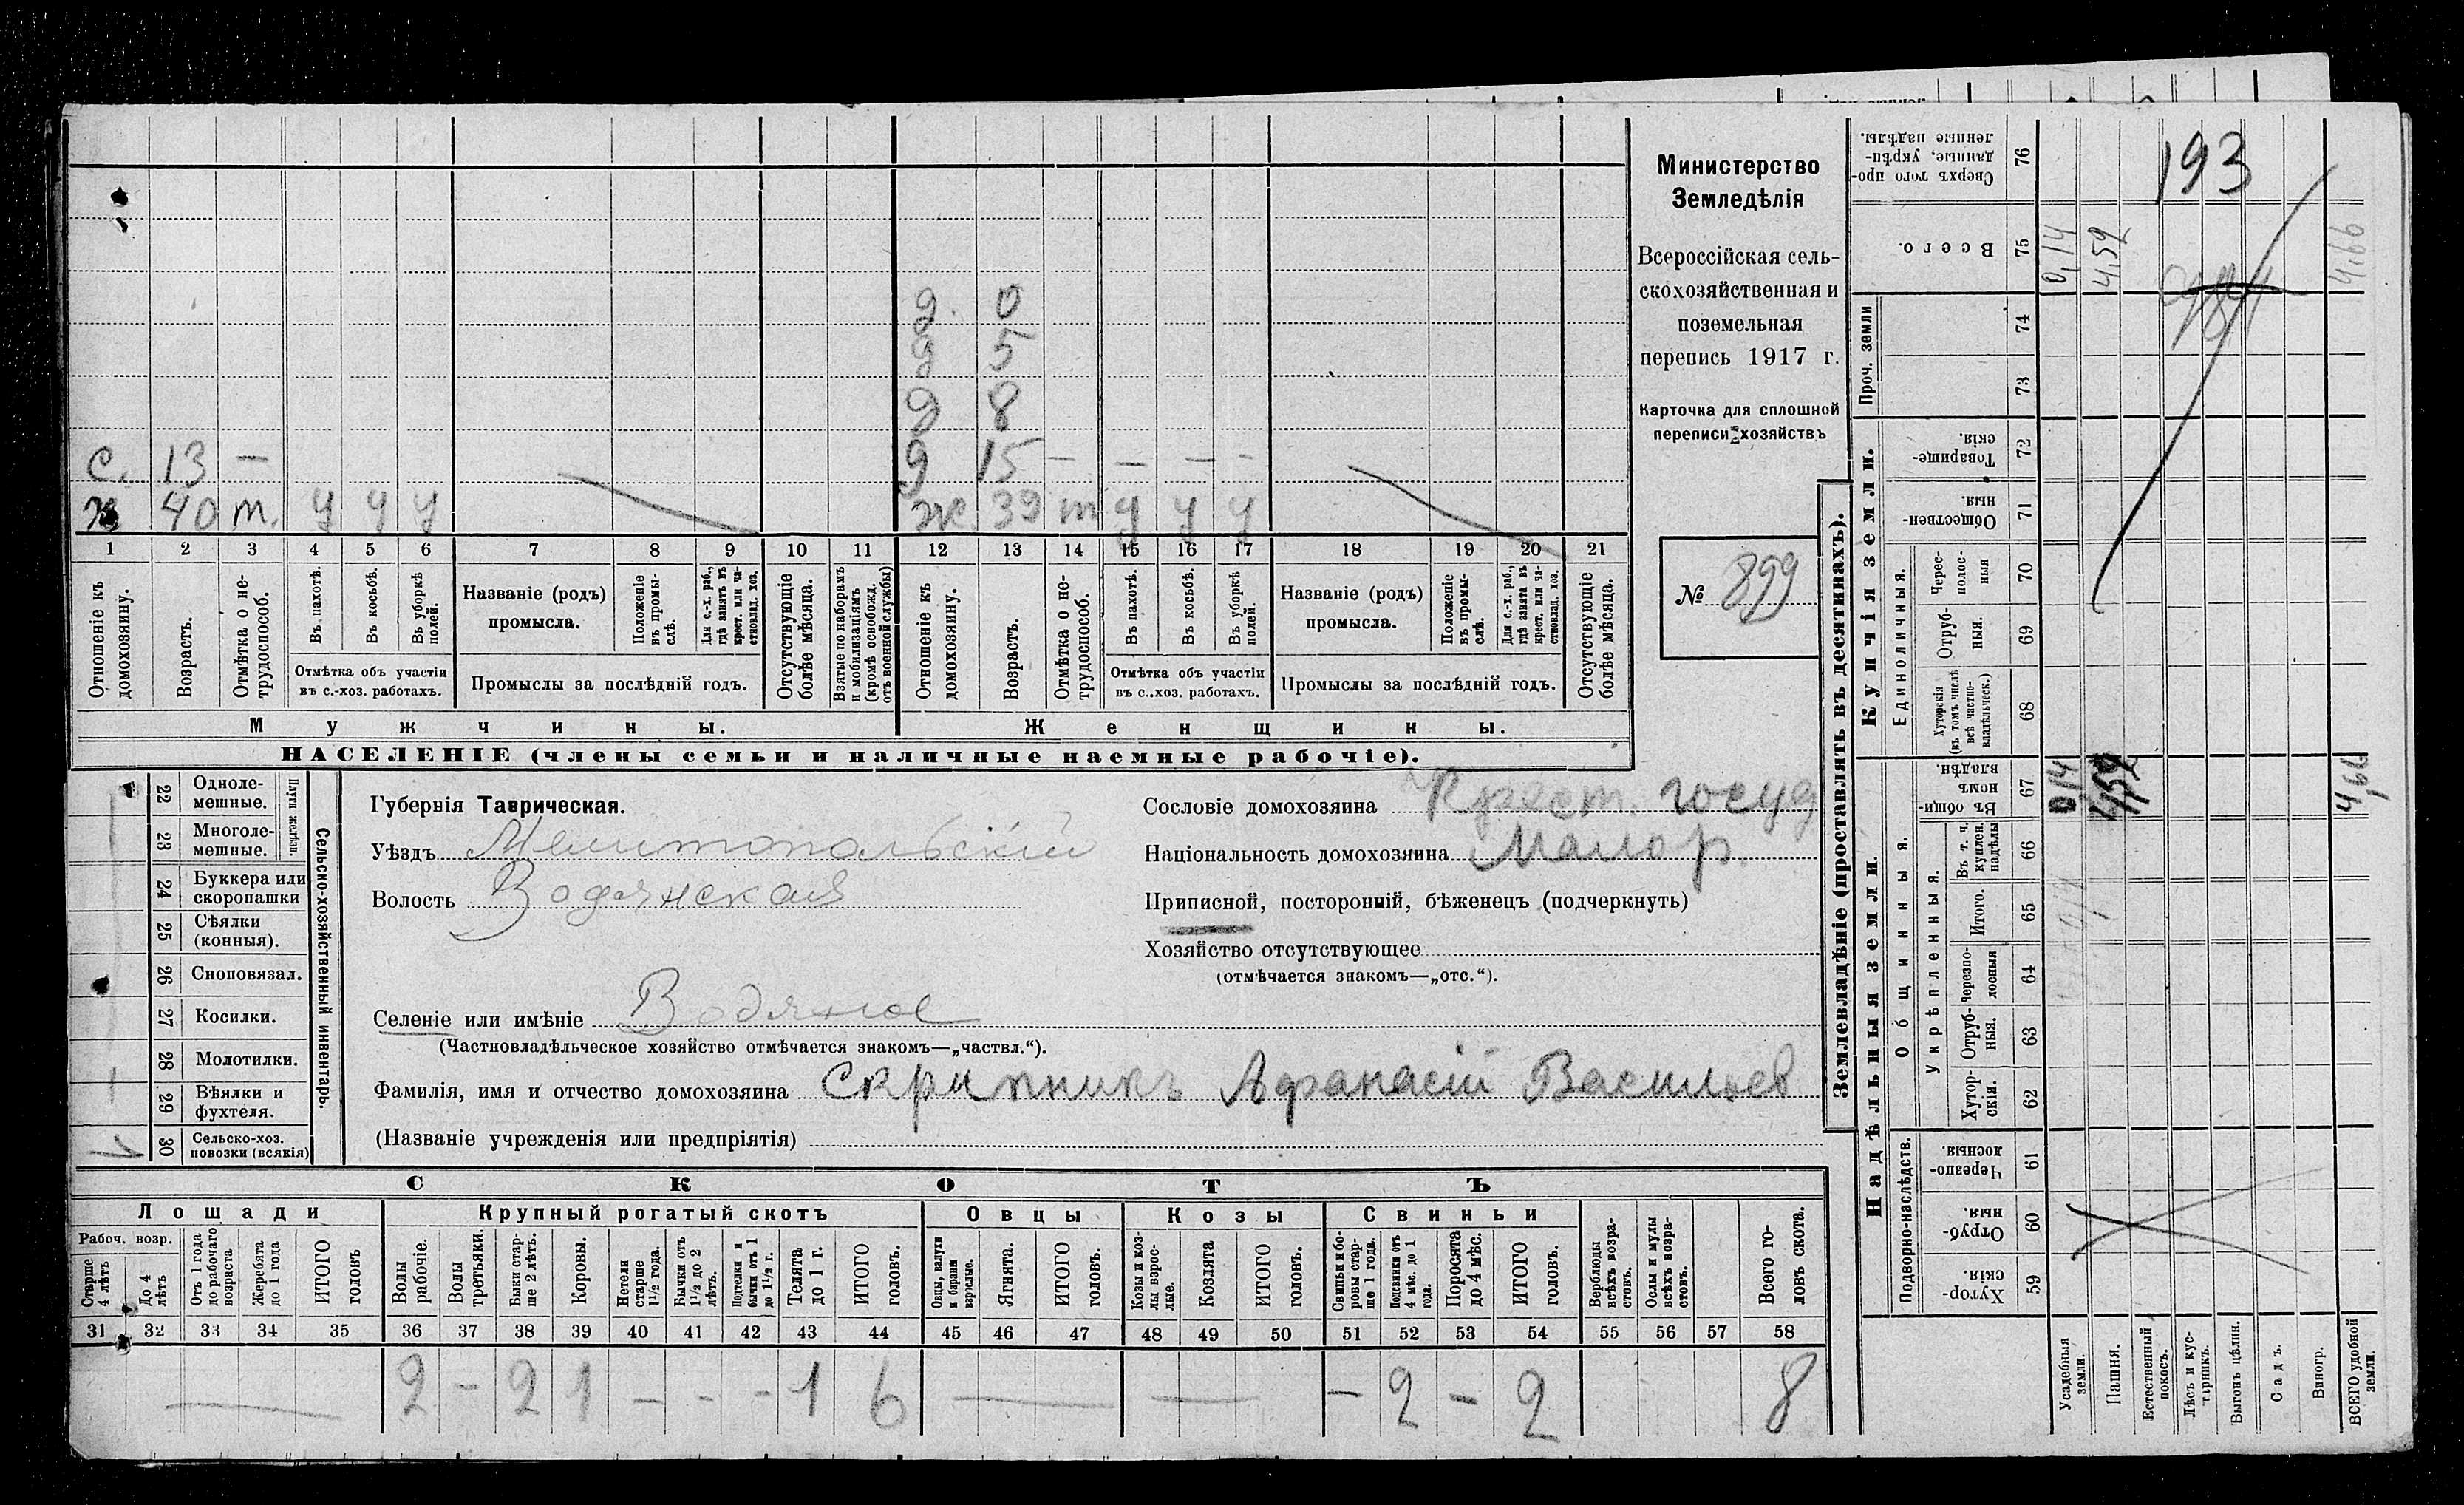 2. 0
д 5
д 8
с. 13 – д 15 – – – –
х 40 т. у у у ж 39 т у у у
1 2 3 4 5 6 7 8 9 10 11 12 13 14 15 16 17 18 19 20 21
Отношеніе къ домохозяину.
Возрастъ.
Отмѣтка о не-трудоспособ.
Въ пахотѣ.
Въ косьбѣ.
Въ уборкѣ полей.
Отмѣтка объ участіи
въ с.-хоз. работахъ.
Названіе (родъ)
промысла.
Положеніе въ промы-слѣ.
Для с.-х. раб., гдѣ занятъ въ крест. или ча-стновлад. хоз.
Промыслы за послѣдній годъ.
Отсутствующіе болѣе мѣсяца.
Взятые по наборамъ и мобилизаціямъ (кромѣ освобожд. отъ военной службы)
Отношеніе къ домохозяину.
Возрастъ.
Отмѣтка о не-трудоспособ.
Въ пахотѣ.
Въ косьбѣ.
Въ уборкѣ полей.
Отмѣтка объ участіи
въ с..хоз. работахъ.
Названіе (родъ)
промысла.
Положеніе въ промы-слѣ.
Для с.-х. раб., гдѣ занята въ крест. или ча-стновлад. хоз.
Промыслы за послѣдній годъ.
Отсутствующіе болѣе мѣсяца.
Мужчины. Женщины.
НАСЕЛЕНІЕ (члены семьи и наличные наемные рабочіе).
Министерство
Земледѣлія
Всероссійская сель-
скохозяйственная и
поземельная
перепись 1917 г.
Карточка для сплошной
переписи хозяйствъ
№ 899
22 Одноле-мешные.
23 Многоле-мешные.
Плуги желѣзн.
24 Буккера или скоропашки
25 Сѣялки (конныя).
26 Сноповязал.
27 Косилки.
28 Молотилки.
29 Вѣялки и фухтеля.
30 Сельско-хоз. повозки (всякія)
Сельско-хозяйственный инвентарь.
Губернія Таврическая.
Уѣздъ Мелитопольскій
Волость Водянская
Селеніе или имѣніе Водяное
(Частновладѣльческое хозяйство отмѣчается знакомъ—„частвл.“).
Фамилія, имя и отчество домохозяина Скрипникъ Афанасій Васильев
(Названіе учрежденія или предпріятія)
Сословіе домохозяина Крест. госуд
Національность домохозяина Малор.
Приписной, посторонній, бѣженецъ (подчеркнуть)
Хозяйство отсутствующее
(отмѣчается знакомъ—„отс.“).
СКОТЪ
Лошади Крупный рогатый скотъ Овцы Козы Свиньи
Рабоч. возр.
Старше 4 лѣтъ
До 4 лѣтъ
Отъ 1 года до рабочаго возраста
Жеребята до 1 года
ИТОГО головъ
Волы рабочіе.
Волы третьяки.
Быки стар-ше 2 лѣтъ.
Коровы.
Нетели старше 1½ года.
Бычки отъ 1½ до 2 лѣтъ.
Подтелки и бычки отъ 1 до 1½ г.
Телята до 1 г.
ИТОГО головъ.
Овцы, валухи и бараны взрослые.
Ягнята.
ИТОГО головъ.
Козы и коз-лы взрос-лые.
Козлята
ИТОГО головъ.
Свиньи и бо-ровы стар-ше 1 года.
Подсвинки отъ 4 мѣс. до 1 года.
Поросята до 4 мѣс.
ИТОГО головъ.
Верблюды всѣхъ возра-стовъ.
Ослы и мулы всѣхъ возра-стовъ.
Всего го-ловъ скота.
31 32 33 34 35 36 37 38 39 40 41 42 43 44 45 46 47 48 49 50 51 52 53 54 55 56 57 58
2 – 2 1 – – – 1 6 – 2 – 2 8
Землевладѣніе (проставлять въ десятинахъ).
Надѣльныя земли. Купчія земли. Проч. земли
Подворно-наслѣдств. Общинныя. Укрѣпленныя. Единоличныя.
Хутор-скія. 59
Отруб-ныя. 60
Черезпо-лосныя 61
Хутор-скія. 62
Отруб-ныя. 63
Черезпо-лосныя 64
Итого. 65
Въ т. ч. куплен. надѣлы 66
Въ общин-номъ владѣн. 67
Хуторскія (въ томъ числѣ всѣ частно-владѣльческ.) 68
Отруб-ныя. 69
Черес-полос-ныя 70
Обществен-ныя. 71
Товарище-скія. 72
73
74
Всего. 75
Сверхъ того про-данные, укрѣп-ленные надѣлы. 76
Усадебныя земли.
Пашня.
Естественный покосъ.
Лѣсъ и кус-тарникъ.
Выгонъ цѣлин.
Садъ.
Виногр.
ВСЕГО удобной земли.
0,14
4,59
193
0,14
4,59